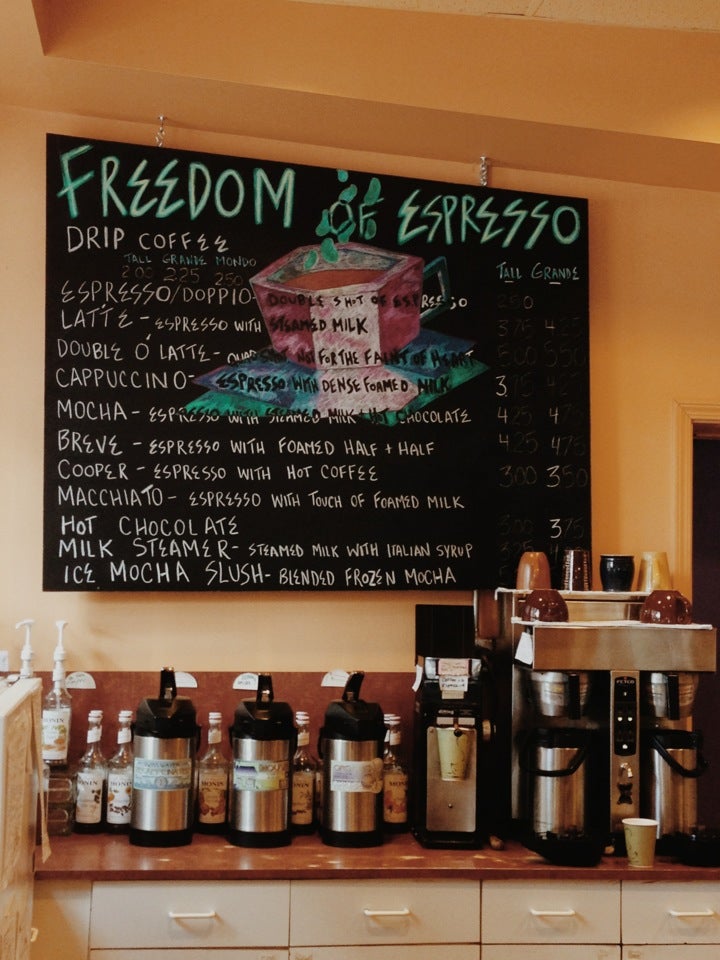 FREEDOM OF ESPRESSO
DRIP COFFEE
TALL GRANDE MONDO
200 225 250
TALL GRANDE
ESPRESSO/DOPPIO- DOUBLE SHOT OF ESPRESSO 250
LATTE - ESPRESSO WITH STEAMED MILK 375 425
DOUBLE O' LATTE- QUAD SHOT NOT FOR THE FAINT OF HEART 500 550
CAPPUCCINO- ESPRESSO WITH DENSE FOAMED MILK 375 425
MOCHA - ESPRESSO WITH STEAMED MILK + HOT CHOCOLATE 425 475
BREVE - ESPRESSO WITH FOAMED HALF + HALF 425 475
COOPER - ESPRESSO WITH HOT COFFEE 300 350
MACCHIATO - ESPRESSO WITH TOUCH OF FOAMED MILK
HOT CHOCOLATE 300 375
MILK STEAMER- STEAMED MILK WITH ITALIAN SYRUP
ICE MOCHA SLUSH- BLENDED FROZEN MOCHA
MONIN
MONIN
MONIN
MONIN
MONIN
FETCO